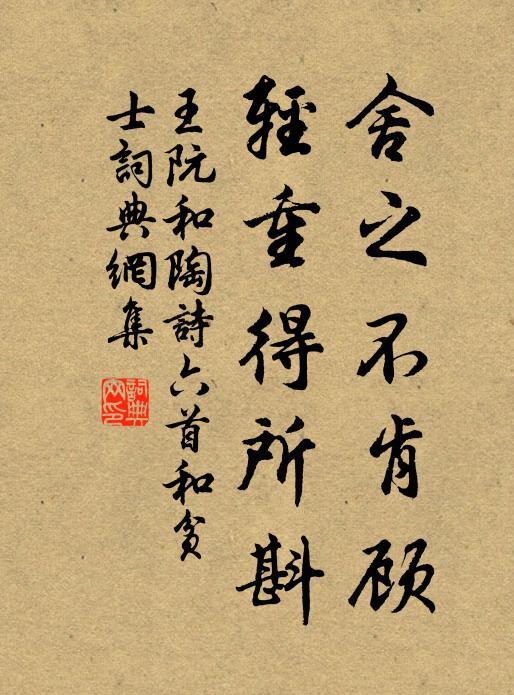 舍之不肯顾
輕重得所斟
王阮和陶詩六首和貧
士詞典網集
詞典